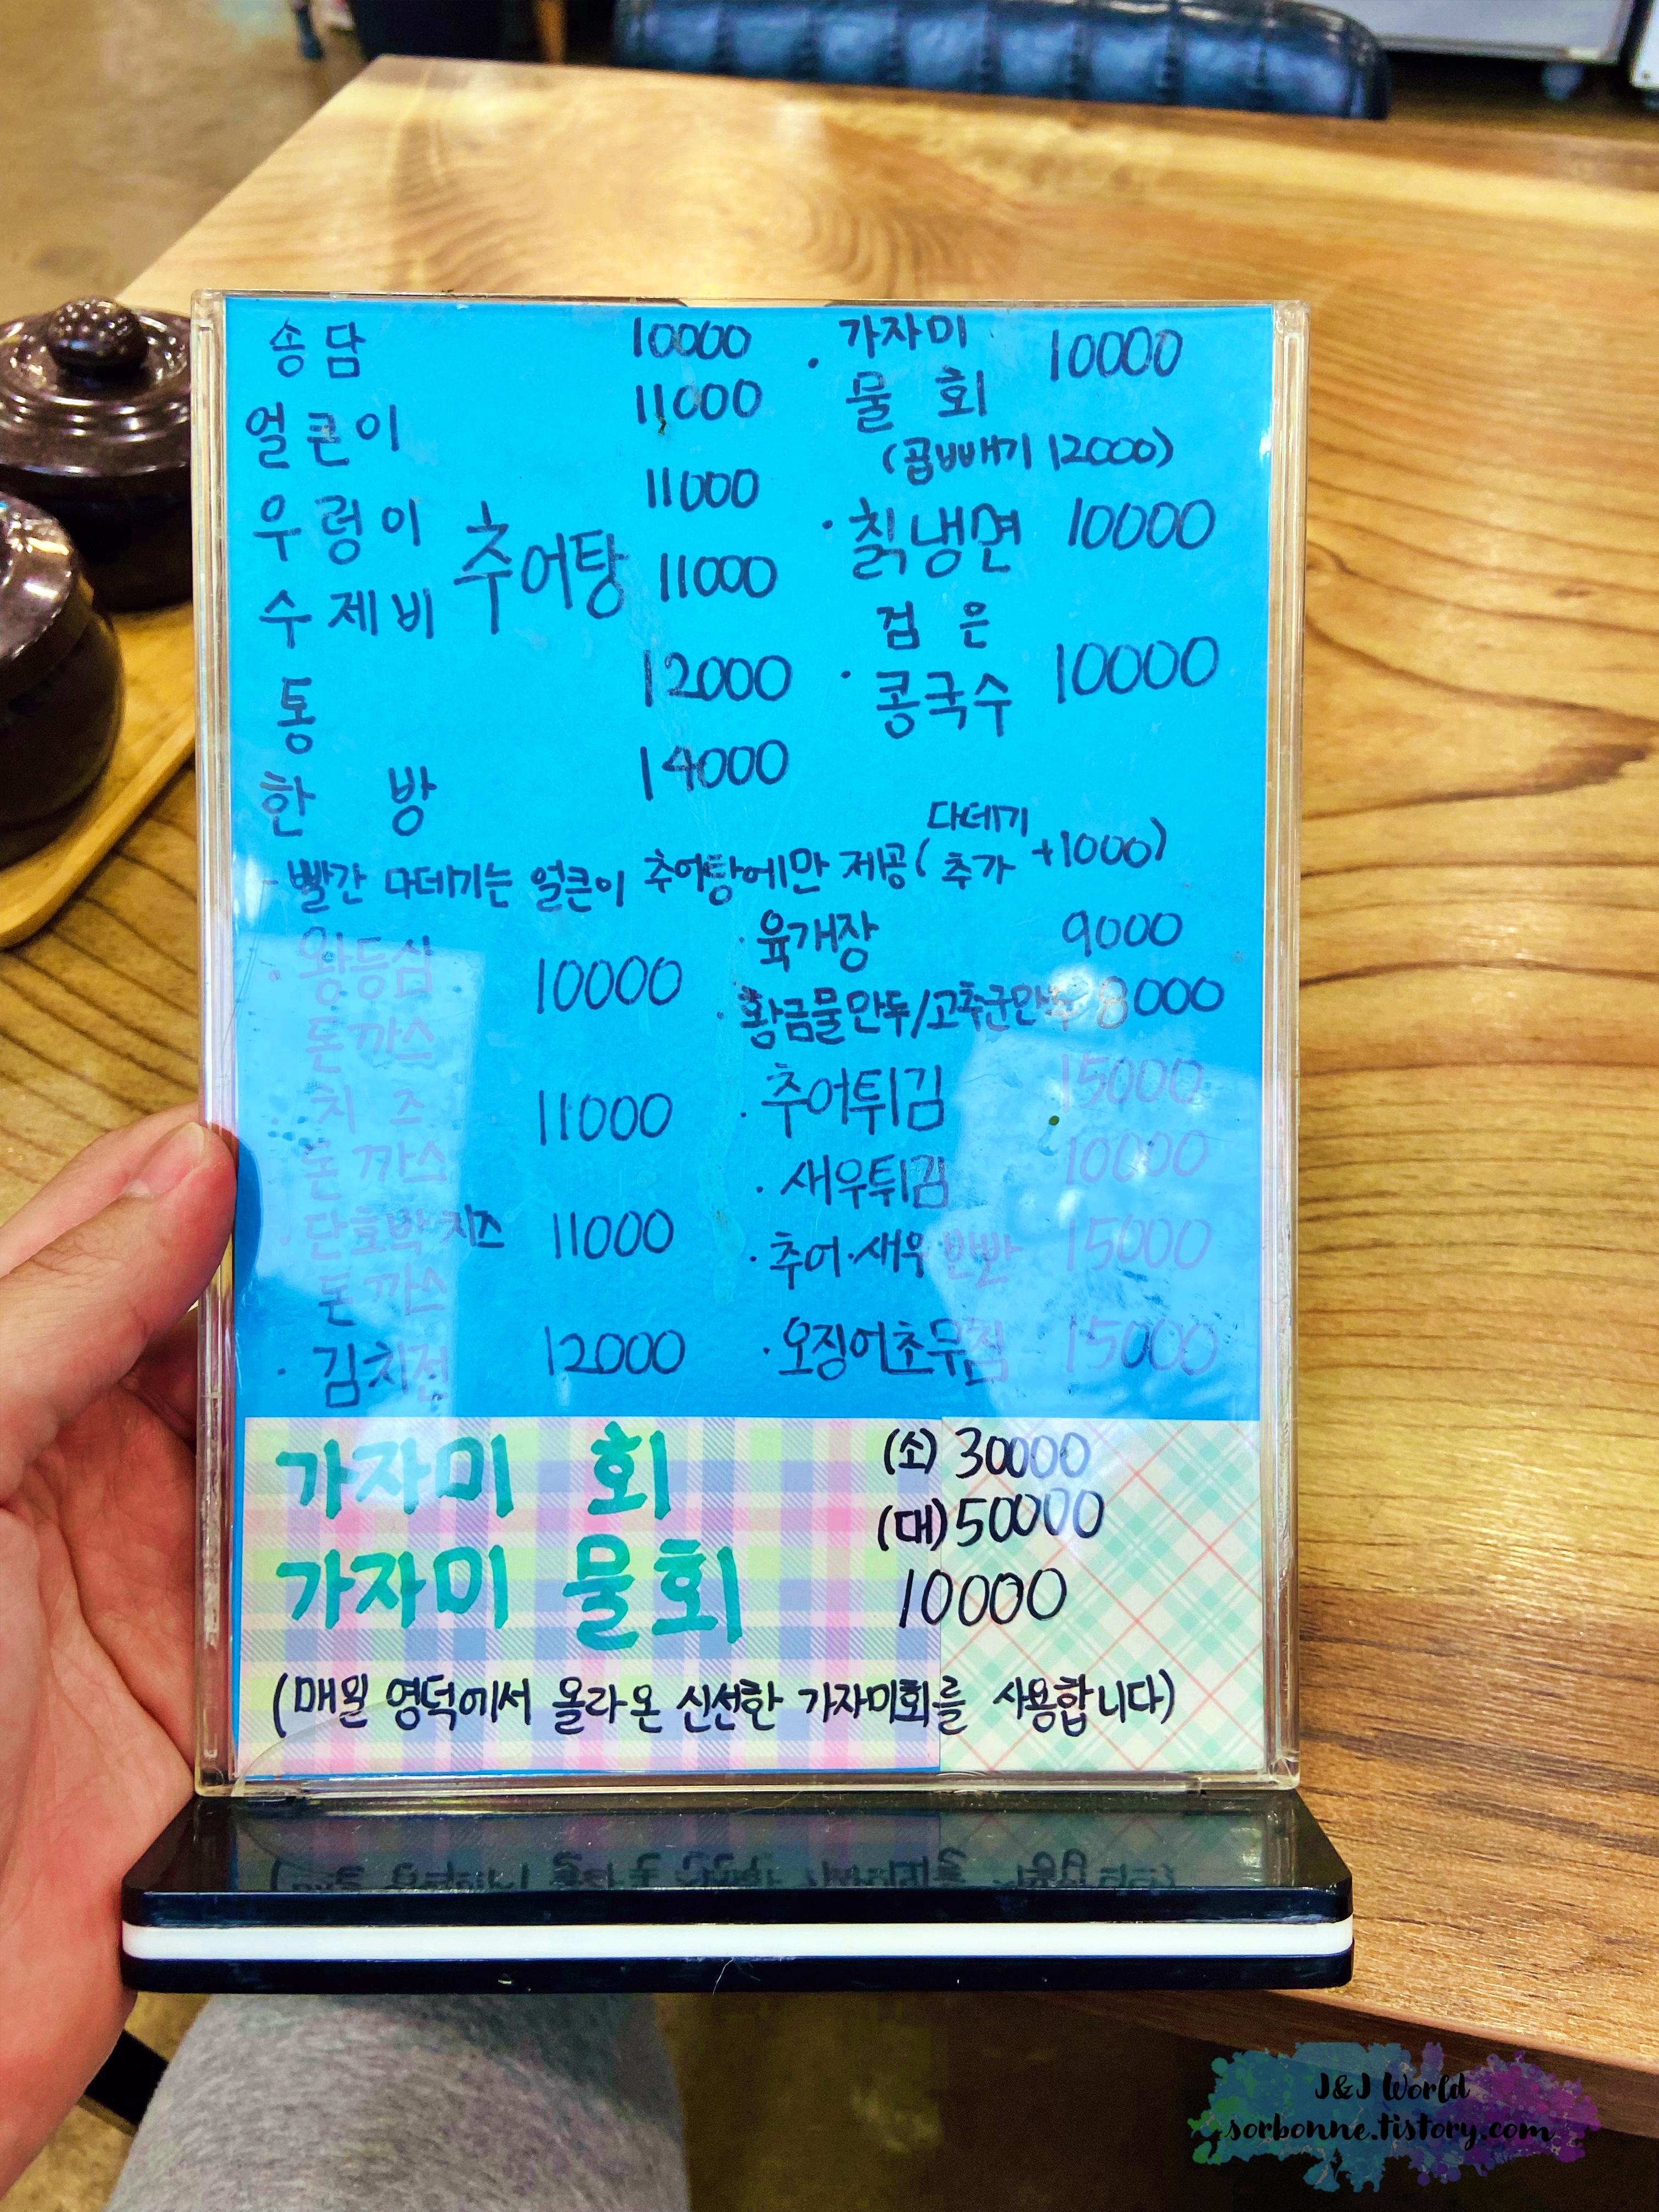 송담 10000
얼큰이 11000
우렁이 11000
수제비 추어탕 11000
통 12000
한 방 14000
· 가자미
물 회 10000
(곱빼기 12000)
· 칡냉면 10000
검 은
· 콩국수 10000
· 빨간 다데기는 얼큰이 추어탕에만 제공( 다데기 추가 +1000)
· 왕등심
돈까스 10000
치 즈
돈까스 11000
· 단호박치즈
돈까스 11000
· 김치전 12000
· 육개장 9000
· 황금물만두/고추군만두 8000
· 추어튀김 15000
· 새우튀김 10000
· 추어·새우 반반 15000
· 오징어초무침 15000
가자미 회 (소) 30000
(대) 50000
가자미 물회 10000
(매일 영덕에서 올라온 신선한 가자미회를 사용합니다)
J&J World
sorbonne.tistory.com